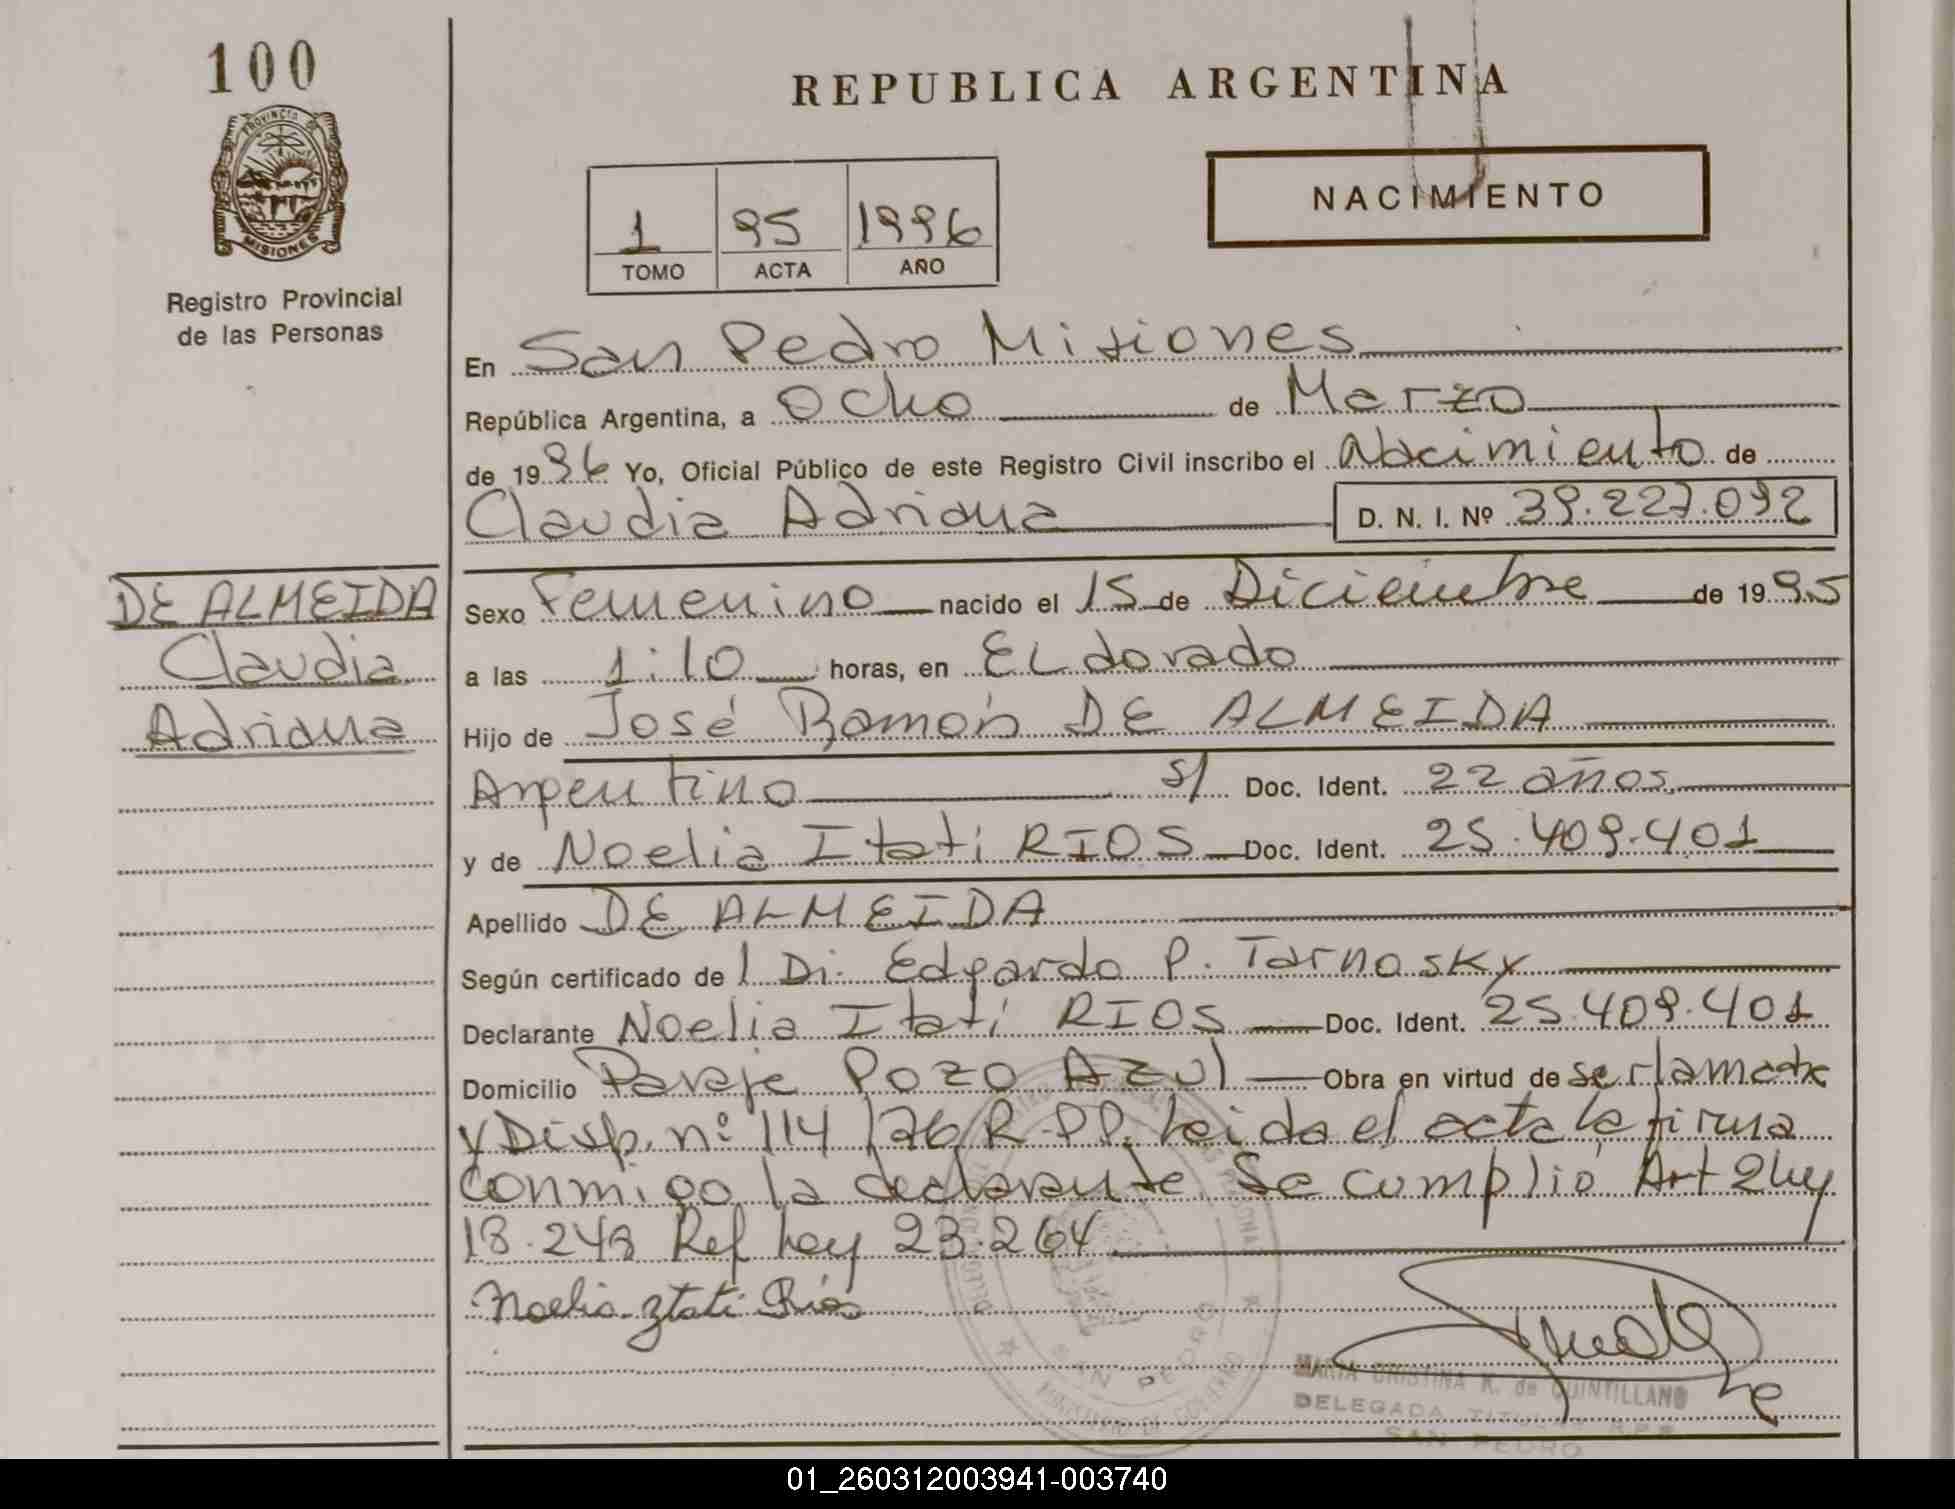 100
PROVINCIA DE
MISIONES
Registro Provincial
de las Personas
REPUBLICA ARGENTINA
NACIMIENTO
1 95 1996
TOMO ACTA AÑO
En San Pedro Misiones
República Argentina, a Ocho de Marzo
de 1996 Yo, Oficial Público de este Registro Civil inscribo el Nacimiento de
Claudia Adriana D. N. I. Nº 39.227.092
DE ALMEIDA
Claudia
Adriana
Sexo Femenino nacido el 15 de Diciembre de 1995
a las 1:10 horas, en ELdorado
Hijo de José Ramón DE ALMEIDA
Argentino s/ Doc. Ident. 22 años
y de Noelia Itatí RIOS Doc. Ident. 25.409.401
Apellido DE ALMEIDA
Según certificado de l Dr. Edgardo P. Tarnosky
Declarante Noelia Itatí RIOS Doc. Ident. 25.409.401
Domicilio Paraje Pozo Azul Obra en virtud de ser la madre
y Disp. nº 114/76 R.P.P. Leida el acta la firma
conmigo la declarante. Se cumplió Art 2 Ley
18.248 Ref Ley 23.264
Noelia Itatí Ríos
SAN PEDRO
MINISTERIO DE GOBIERNO
MARIA CRISTINA K. de QUINTILLANO
DELEGADA TITULAR R.P.P.
SAN PEDRO
01_260312003941-003740